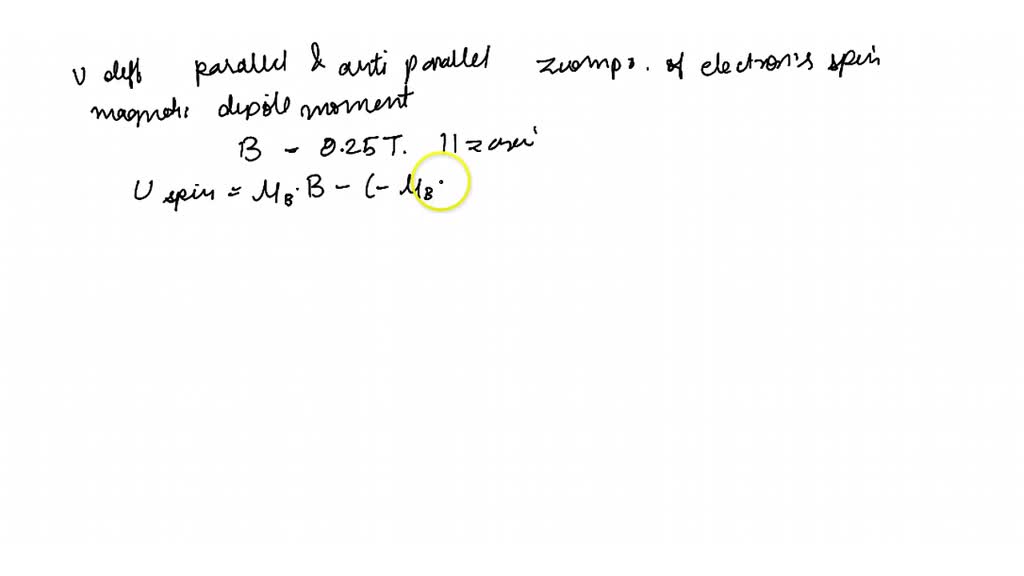 U diff parallel & anti parallel z comps. of electron's spin
magnetic dipole moment
B - 0.25 T. || z axis
U spin = μB · B - (- μB ·